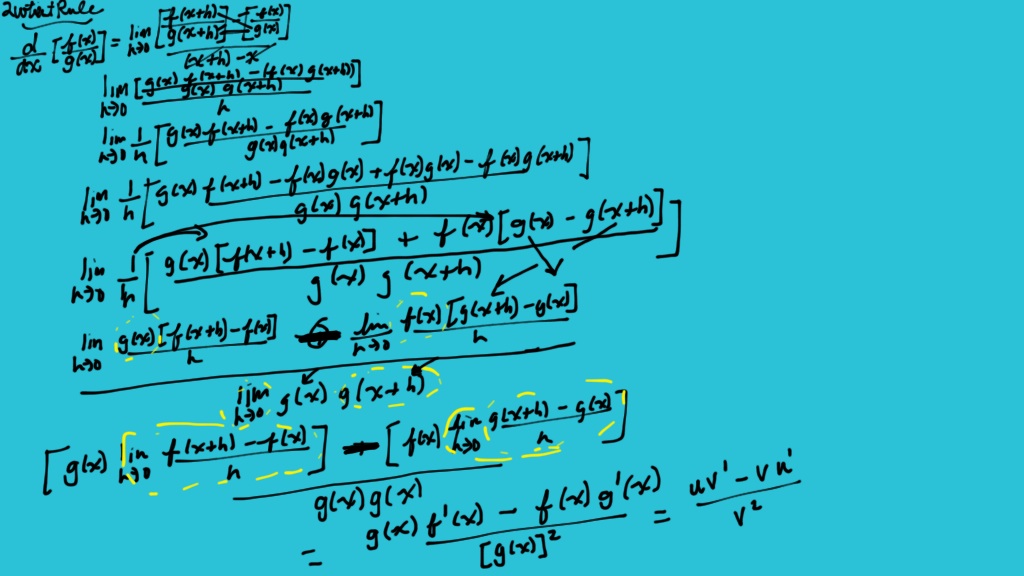 Quotient Rule
d/dx [f(x)/g(x)] = lim h→0 [[f(x+h)/g(x+h)] - [f(x)/g(x)]] / (x+h) - x
lim h→0 [g(x) f(x+h) - (f(x) g(x+h)) / g(x) g(x+h)] / h
lim h→0 1/h [g(x) f(x+h) - f(x) g(x+h) / g(x) g(x+h)]
lim h→0 1/h [g(x) f(x+h) - f(x) g(x) + f(x) g(x) - f(x) g(x+h) / g(x) g(x+h)]
lim h→0 1/h [g(x) [f(x+h) - f(x)] + f(x) [g(x) - g(x+h)] / g(x) g(x+h)]
lim h→0 g(x) [f(x+h) - f(x)] / h - lim h→0 f(x) [g(x+h) - g(x)] / h
lim h→0 g(x) g(x+h)
[g(x) lim h→0 f(x+h) - f(x) / h] - [f(x) lim h→0 g(x+h) - g(x) / h]
g(x) g(x)
= g(x) f'(x) - f(x) g'(x) / [g(x)]² = uv' - vu' / v²